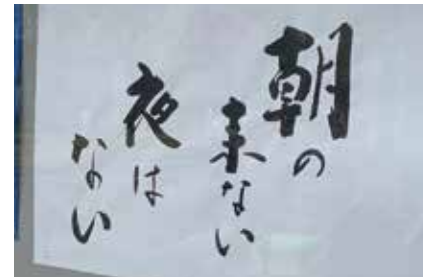 朝の
来ない
夜は
ない